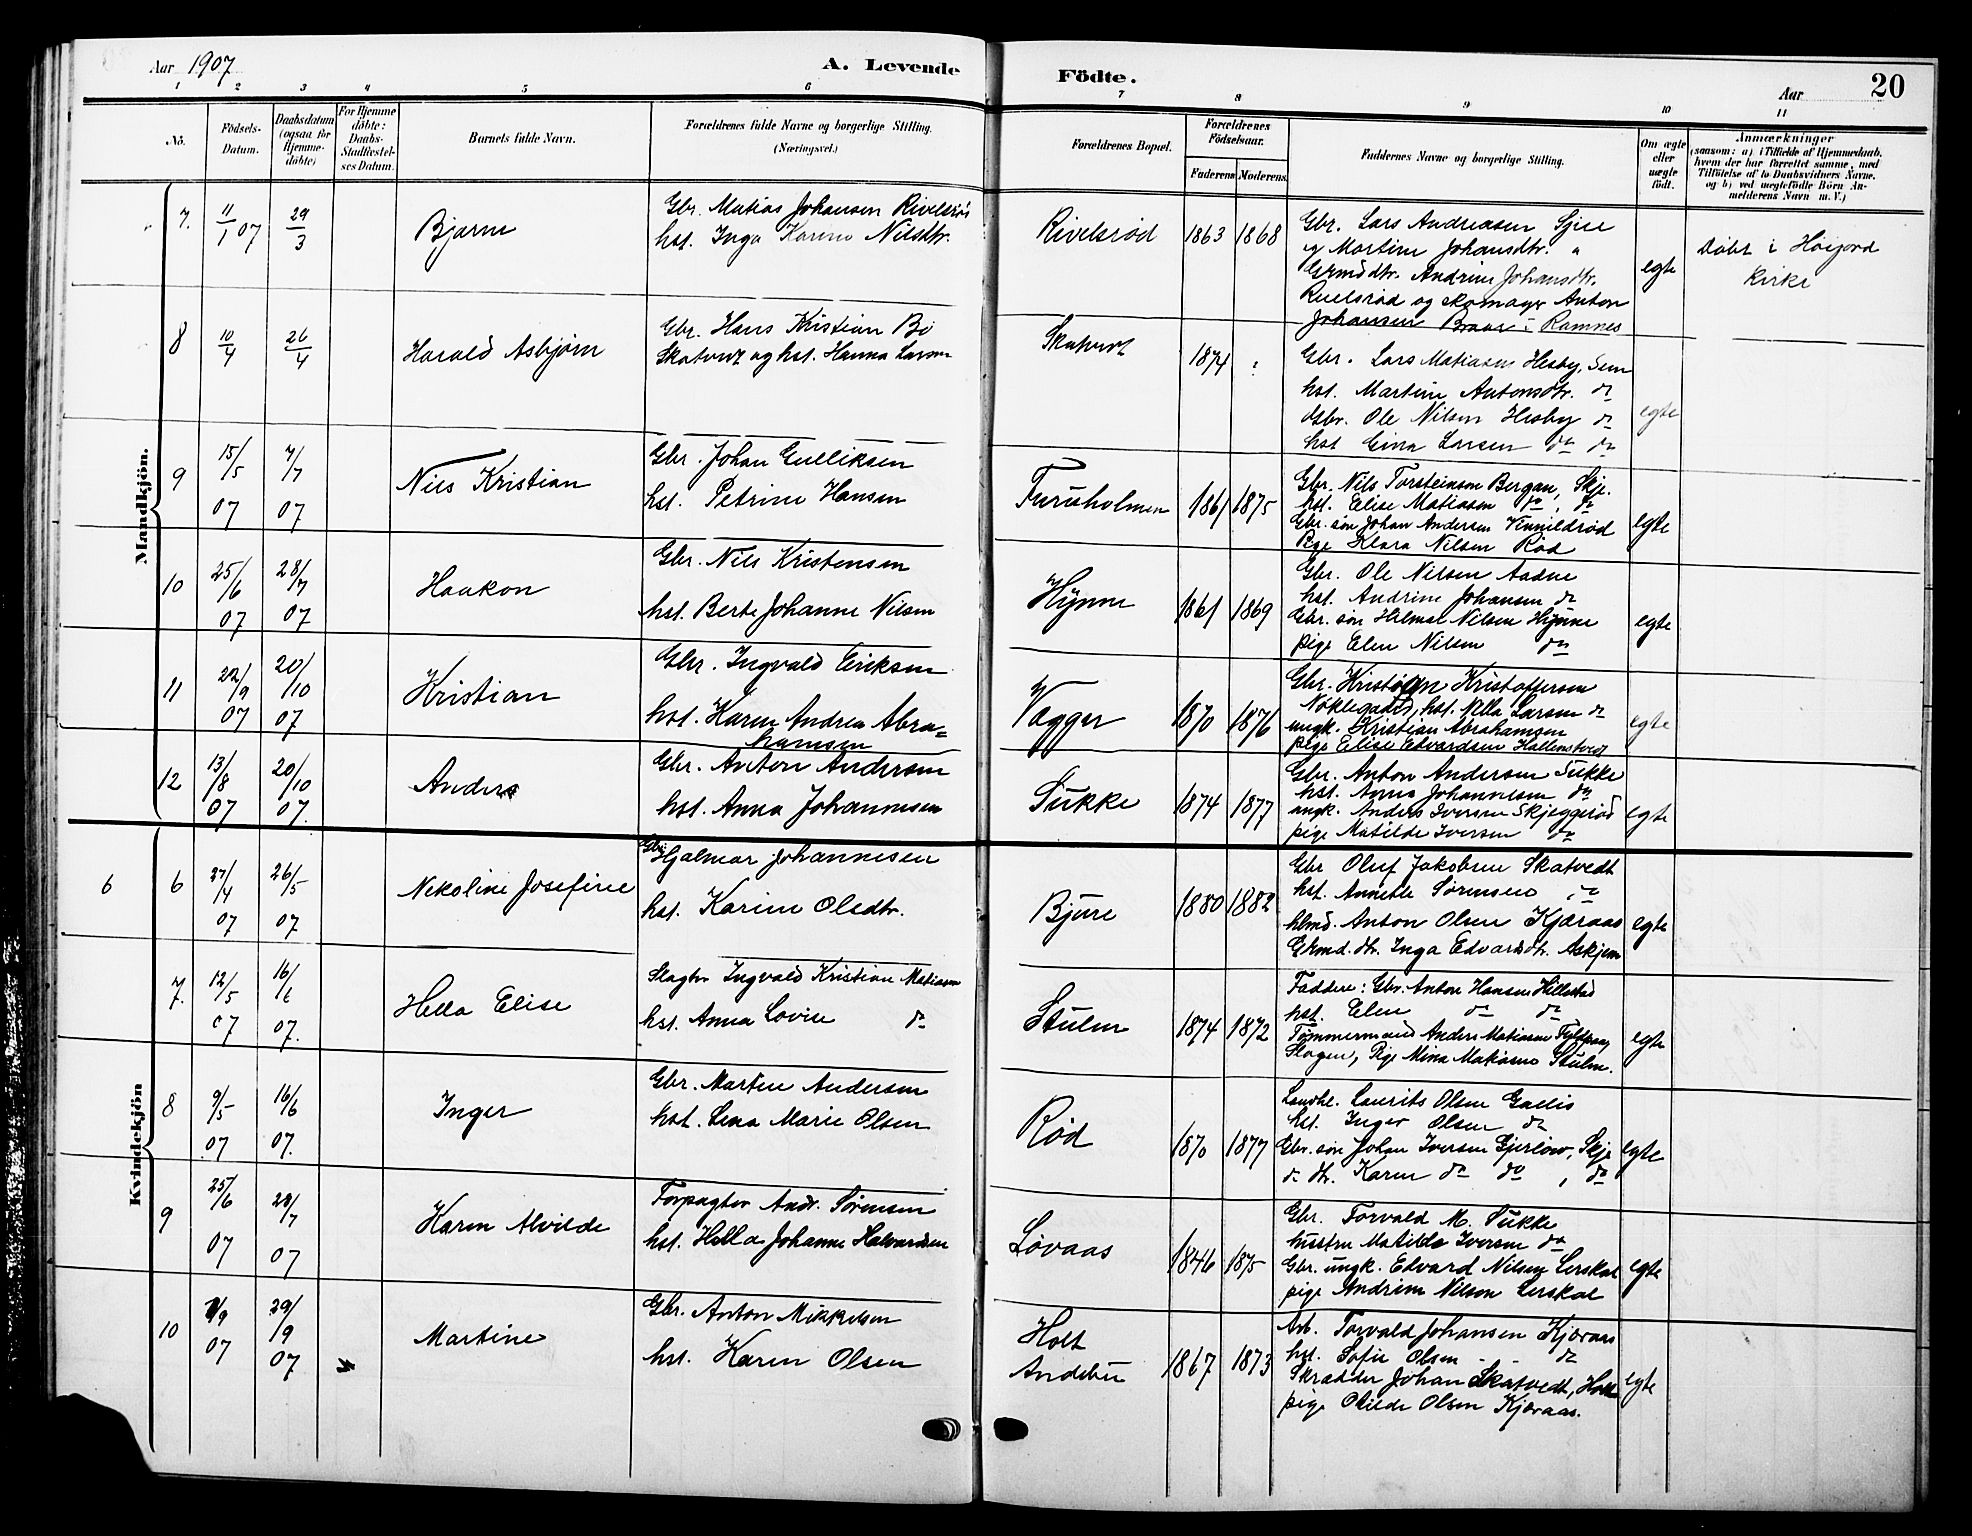 Aar 1907
A. Levende Födte.
Aar
20
1 2 3 4 5 6 7 8 9 10 11
No.
Födsels-Datum.
Daabsdatum (ogsaa for Hjemme-döbte)
For Hjemme döbte: Daabs-Stadfæstel-ses Datum.
Barnets fulde Navn.
Forældrenes fulde Navne og borgerlige Stilling. (Næringsvei.)
Forældrenes Bopæl.
Forældrenes Födselsaar.
Faderens Moderens
Faddernes Navne og borgerlige Stilling.
Om ægte eller uægte födt.
Anmærkninger
(saasom: a) i Tilfælde af Hjemmedaab, hvem der har forrettet samme, med Tilföielse af to Daabsvidners Navne, og b) ved uægtefödte Börn An-melderens Navn m. V.)
Mandkjön.
7. 11/1 07 29/3 Bjarne
Gbr. Matias Johansen Rivelsrød
hst. Inga Karine Nilsdtr.
Rivelsrød 1863 1868
Gbr. Lars Andreasen Gjere
og Martine Johansdtr. "
Grmd dtr. Andrine Johansdtr.
Rivelsrød og skomager Anton
Johansen Braar i Ramnes
egte
Døbt i Høijord
Kirke
8 10/4 26/4 Harald Asbjørn
Gbr. Hans Kristian Bø
Skatvet og hst. Hanna Larsen
Skatvedt 1874
Gbr. Lars Matiasen Hesby, Sem
hst. Martine Antonsdtr. do
Gbr. Ole Nilsen Hesby do
hst Gina Larsen do do
egte
9 15/5 07 7/7 07 Nils Kristian
Gbr. Johan Gulliksen
hst. Petrine Hansen
Furuholmen 1861 1875
Gbr. Nils Torsteinson Bergan, Skje.
hst. Elise Matiasen do, do
Gbr. søn Johan Andersen Vinnildrød
Pige Klara Nilsen Rød
egte
10 25/6 07 28/7 07 Haakon
Gbr. Nils Kristensen
hst. Berte Johanne Nilsen
Hynne 1861 1869
Gbr. Ole Nilsen Aadne
hst. Andrine Johansen do
Gbr. søn Hilmar Nilsen Hynne
pige Elen Nilsen do
egte
11 22/9 07 20/10 07 Kristian
Gbr. Ingvald Eriksen
hst. Karen Andrea Abra=
hamsen
Vegger 1870 1876
Gbr. Kristian Kristoffersen
Nøklegaard, hst. Nella Larsen do
ungk. Kristian Abrahamsen
pige Elise Edvardsen Hallenstvedt
egte
12 13/8 07 20/10 07. Anders
Gbr. Anton Andersen
hst. Anna Johannesen
Sukke 1874 1877
Gbr. Anton Andersen Sukke
hst. Anna Johannesen do
ungk. Anders Iversen Skjeggerød
pige Matilde Iversen do
egte
Kvindekjön
6 6 27/4 07 26/5 07 Nekoline Josefine
Gbr. Hjalmar Johannesen
hst. Karine Olsdtr.
Bjure 1880 1882
Gbr Oluf Jakobsen Skatvedt
hst. Annette Sørensen do
hlmd. Anton Olsen Kjæraas
Grmd. dtr. Inga Edvardsdtr. Askjem
egte
7. 12/5 07 16/6 07. Hella Elise
Slagter Ingvald Kristian Matiasen
hst. Anna Lovise do
Stulen 1874 1872
Faddere: Gbr. Anton Hansen Hillestad
hst. Elen do do
Tømmermand Anders Matiasen
Slagen, Pige Mina Matiasen Stulen.
egte
8 9/5 07 16/6 07. Inger
Gbr. Martin Andersen
hst. Lena Marie Olsen
Rød 1870 1877
Landhl. Laurits Olsen Gallis
hst. Inger Olsen do
Gbr. søn Johan Iversen Gjerløw, Skje
do dtr. Karen do do, do
egte
9 25/6 07 28/7 07 Karen Alvilde
Forpagter Andr. Sørensen
hst. Hella Johanne Halvardsen
Løvaas 1846 1875
Gbr. Torvald M. Sukke
hustru Matilde Iversen do
Gbr. ungk. Edvard Nilsen Lerskal
pige Andrine Nilsen Lerskal
egte
10 7/9 07 29/9 07 Martine
Gbr. Anton Mikkelsen
hst. Karen Olsen
Holt
Andebu 1867 1873
Arb. Torvald Johansen Kjæraas
hst. Sofie Olsen - - do
Skrædder Johan Skatvedt, Holt
pige Otilde Olsen Kjæraas.
egte